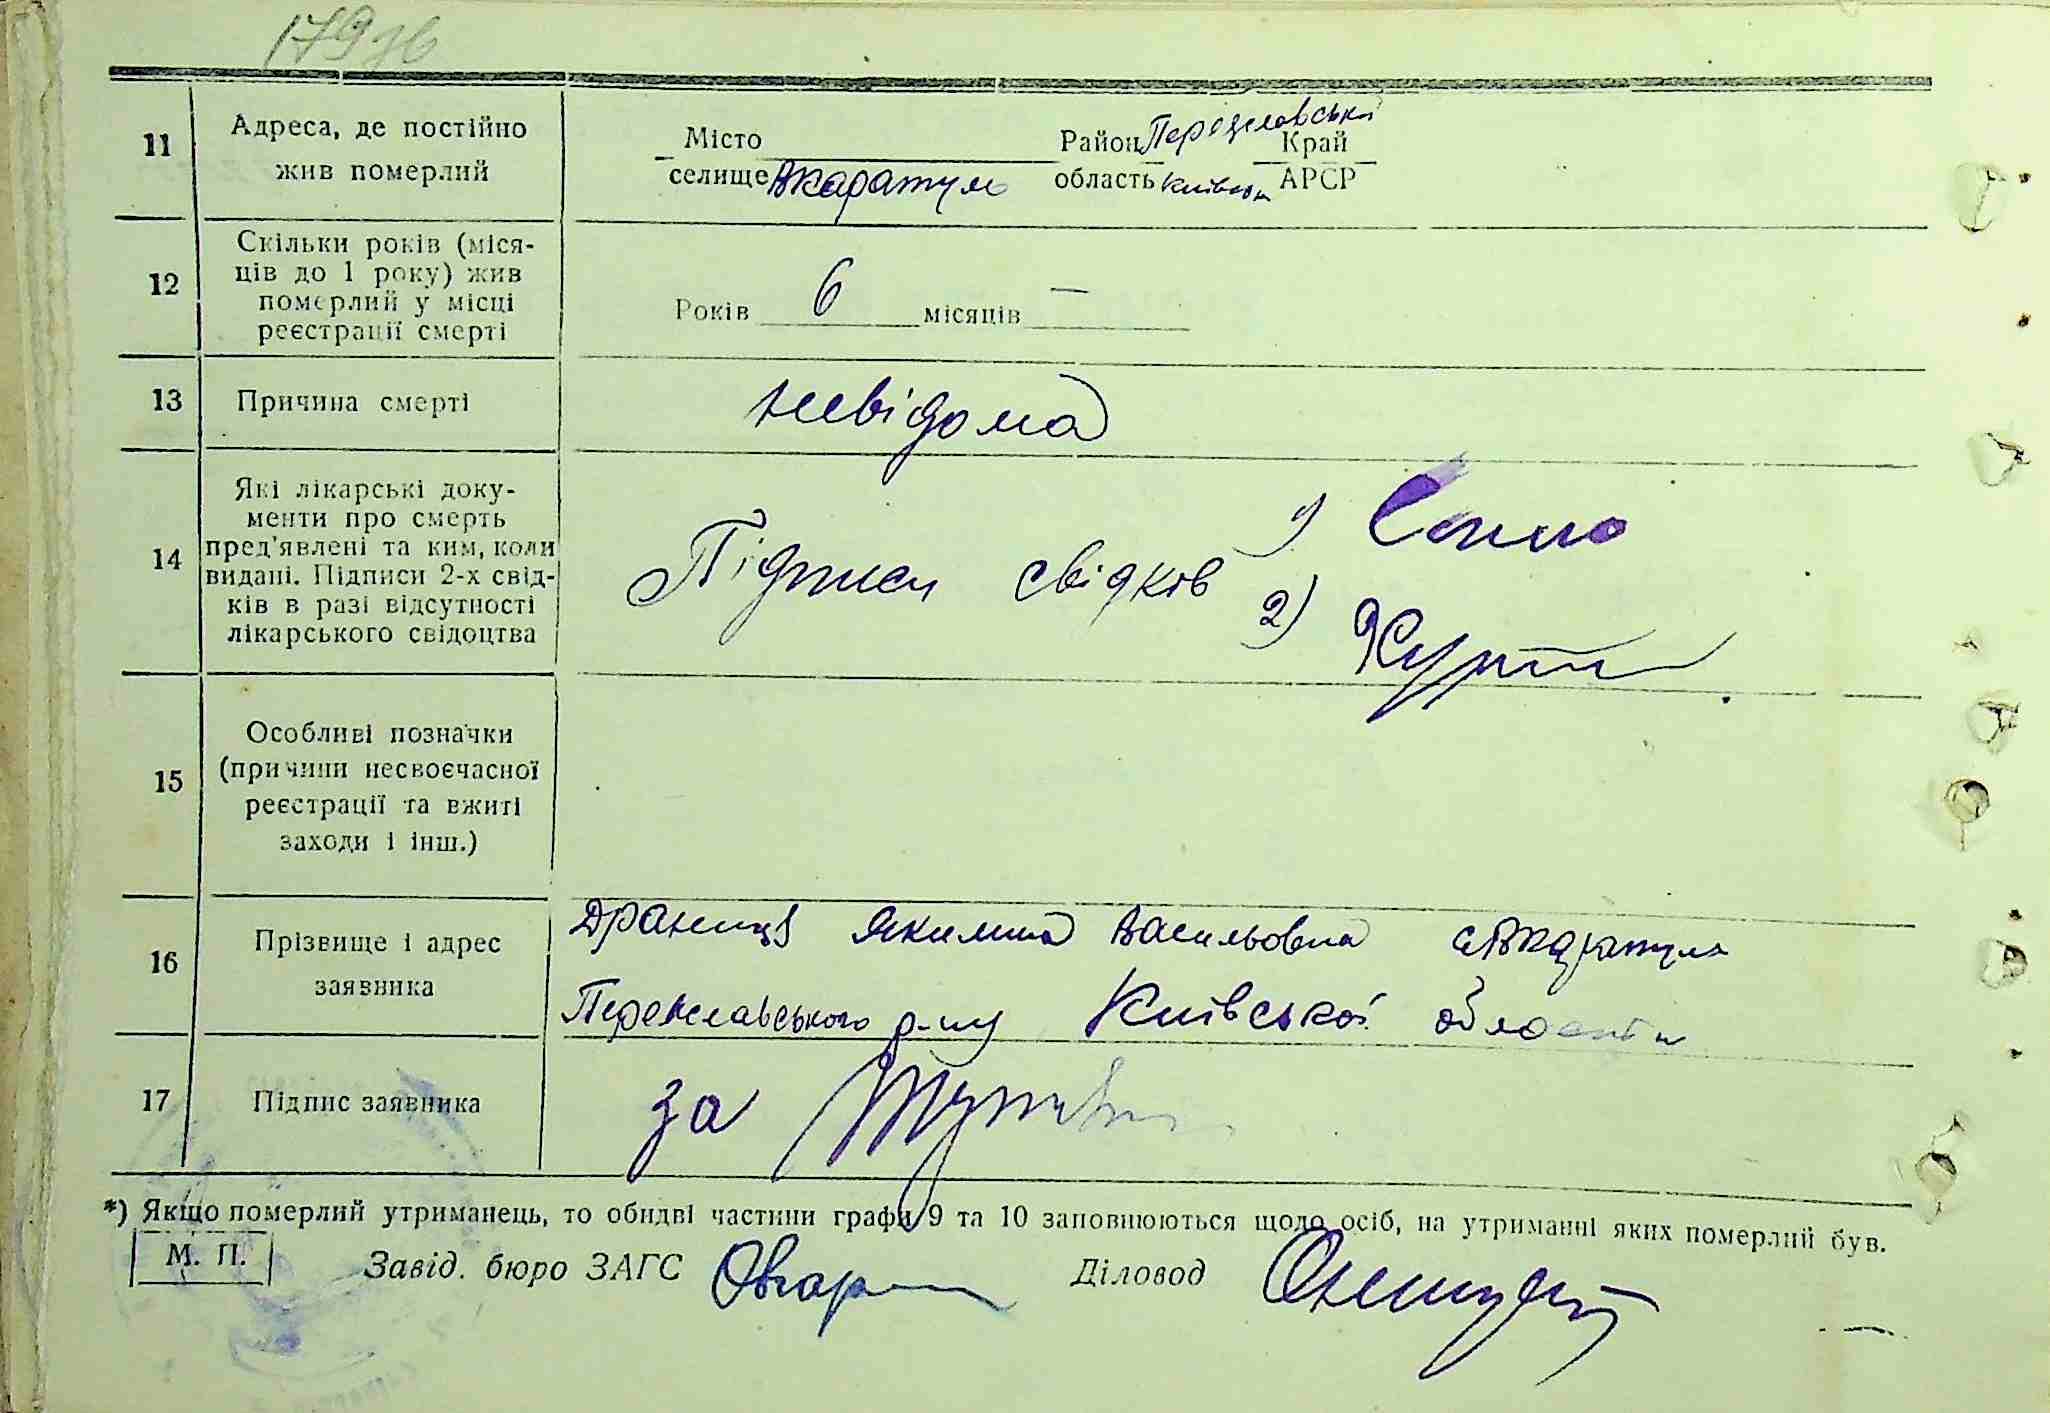 179 зв
11 Адреса, де постійно жив померлий
Місто Район Переяславськ Край
селище Вкаратул область Київськ АРСР
12 Скільки років (міся-
ців до 1 року) жив
померлий у місці
реєстрації смерті
Років 6 місяців —
13 Причина смерті невідома
14 Які лікарські доку-
менти про смерть
пред'явлені та ким, коли
видані. Підписи 2-х свід-
ків в разі відсутності
лікарського свідоцтва
Підписи свідків 1)
2)
15 Особливі позначки
(причини несвоєчасної
реєстрації та вжиті
заходи і інш.)
16 Прізвище і адрес
заявника
Якилина Васильовна
Переяславського р-ну Київської області
17 Підпис заявника за
*) Якщо померлий утриманець, то обидві частини графи 9 та 10 заповнюються щодо осіб, на утриманні яких померлий був.
М. П. Завід. бюро ЗАГС Діловод